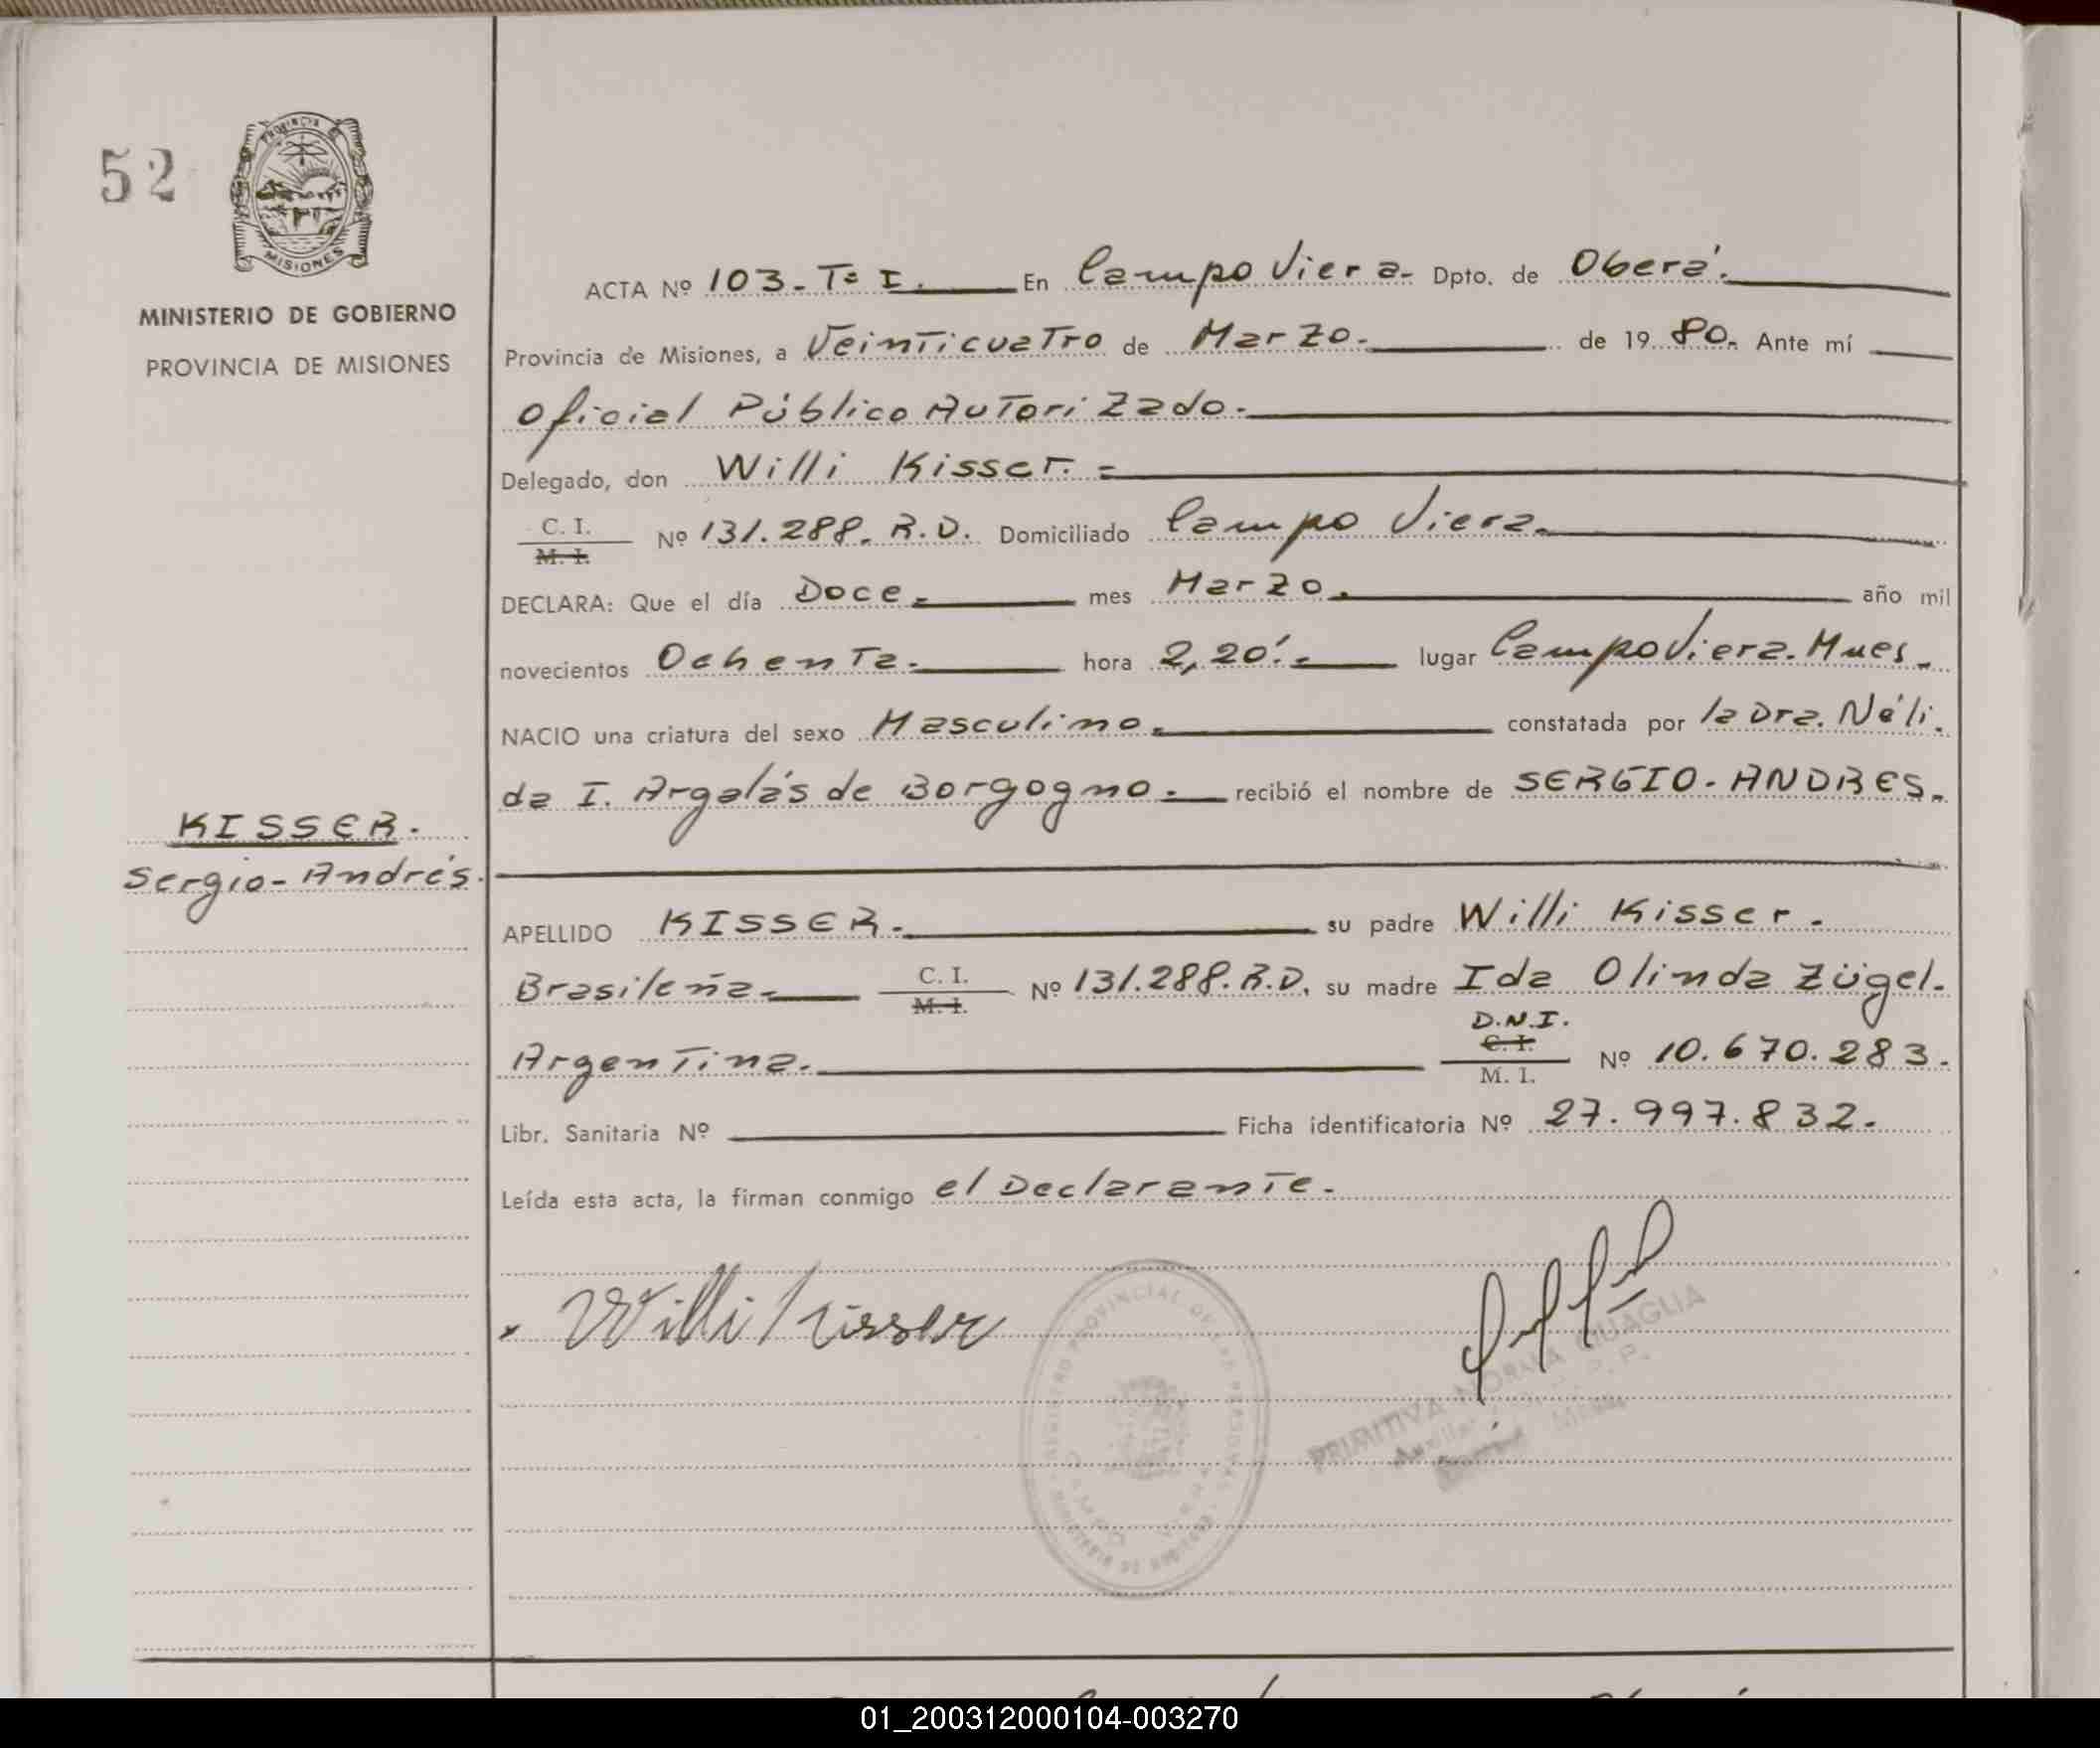 52
PROVINCIA
MISIONES
MINISTERIO DE GOBIERNO
PROVINCIA DE MISIONES
ACTA Nº 103-Tº I. En Campo Viera- Dpto. de Oberá.
Provincia de Misiones, a Veinticuatro de Marzo. de 19 80. Ante mí
Oficial Público Autorizado.
Delegado, don Willi Kisser.
C. I.
M. I.
Nº 131.288. R.D. Domiciliado Campo Viera.
DECLARA: Que el día Doce. mes Marzo. año mil
novecientos Ochenta. hora 2,20'. lugar Campo Viera. Mnes.
NACIO una criatura del sexo Masculino. constatada por la Dra. Néli-
da I. Argalás de Borgogno. recibió el nombre de SERGIO-ANDRES.
KISSER.
Sergio-Andrés.
APELLIDO KISSER. su padre Willi Kisser.
Brasileña. C. I. M. I. Nº 131.288.R.D. su madre Ida Olinda Zügel.
Argentina. D.N.I. C. I. M. I. Nº 10.670.283.
Libr. Sanitaria Nº Ficha identificatoria Nº 27.997.832.
Leída esta acta, la firman conmigo el Declarante.
Willi Kisser
REGISTRO PROVINCIAL DE LAS PERSONAS
CAMPO VIERA
PRIMITIVA NORMA QUAGLIA
01_200312000104-003270